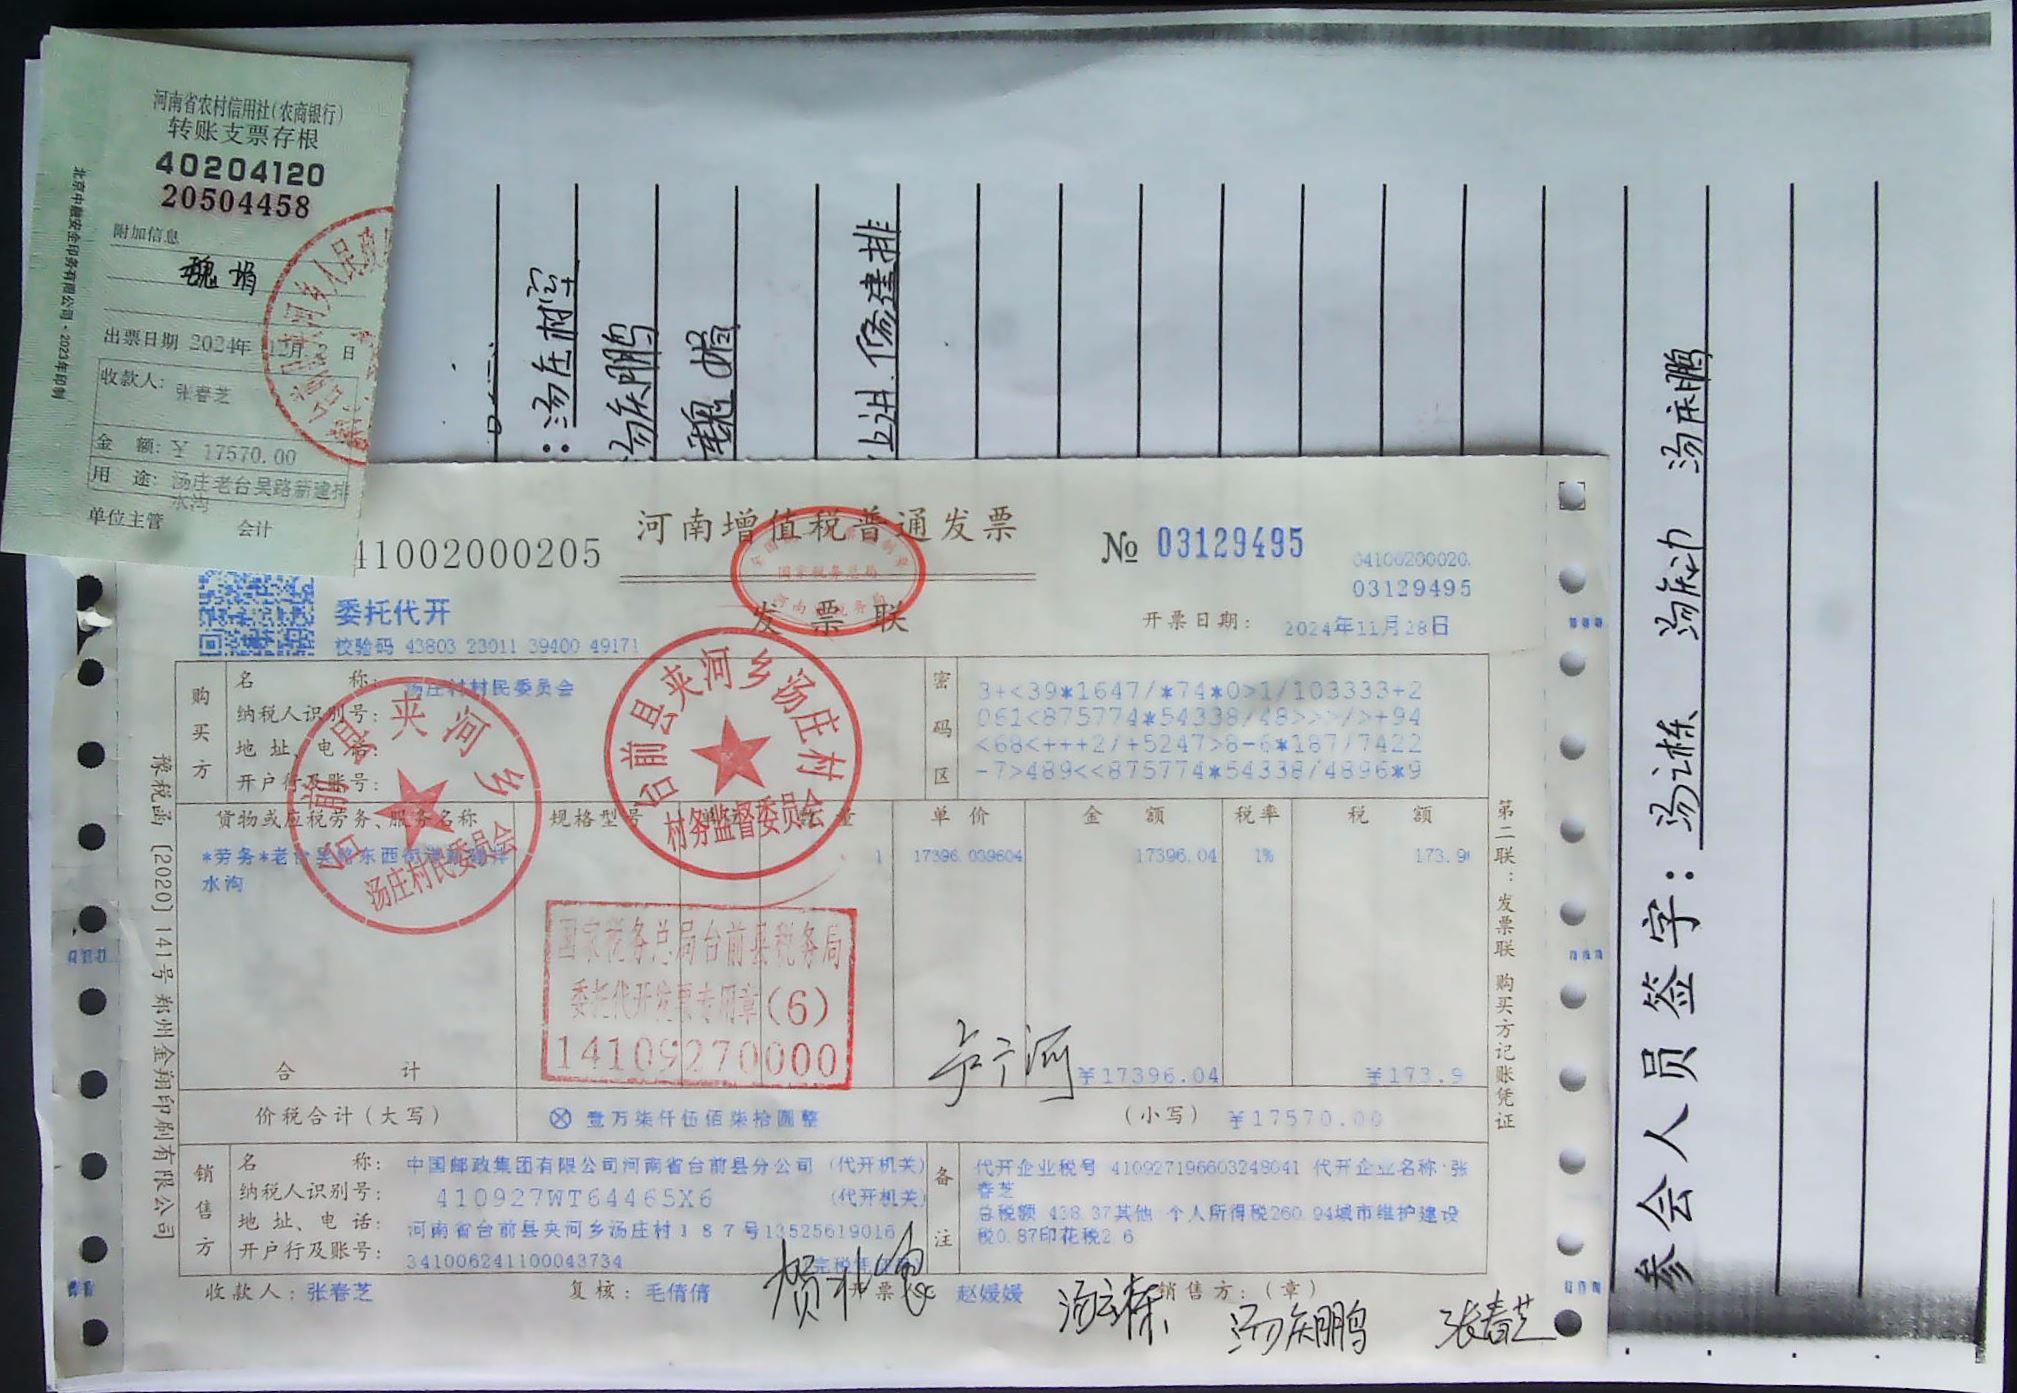 河南省农村信用社(农商银行)
转账支票存根
40204120
20504458
附加信息
魏娟
出票日期 2024年12月 日
收款人: 张春芝
金 额: ¥ 17570.00
用 途: 汤庄老台吴路新建排
水沟
单位主管 会计
北京中融安全印务有限公司·2023年印制
41002000205
河南增值税普通发票
发票联
№ 03129495
04100200020
03129495
开票日期: 2024年11月28日
委托代开
校验码 43803 23011 39400 49171
购买方
名 称: 汤庄村村民委员会
纳税人识别号:
地 址、电 话:
开户行及账号:
密码区
3+<39*1647/*74*0>1/103333+2
061<875774*54338/48>>>/>+94
<68<+++2/+5247>8-6*187/7422
-7>489<<875774*54338/4896*9
货物或应税劳务、服务名称 规格型号 单位 数量 单价 金额 税率 税额
*劳务*老台吴路东西 1 17396.039604 17396.04 1% 173.9
水沟
合 计 ¥17396.04 ¥173.9
价税合计(大写) ⊗ 壹万柒仟伍佰柒拾圆整 (小写) ¥17570.00
销售方
名 称: 中国邮政集团有限公司河南省台前县分公司 (代开机关)
纳税人识别号: 410927WT64465X6 (代开机关)
地 址、电 话: 河南省台前县夹河乡汤庄村187号13525619016
开户行及账号: 341006241100043734
备注
代开企业税号 410927196603248041 代开企业名称:张
春芝
总税额 438.37其他 个人所得税260.94城市维护建设
税0.87印花税2.6
收款人: 张春芝 复核: 毛倩倩 开票人: 赵媛媛 销售方:(章)
第二联:发票联 购买方记账凭证
豫税函〔2020〕141号 郑州金翔印刷有限公司
国家税务总局
台前县夹河乡汤庄村
村务监督委员会
台前县夹河乡
汤庄村民委员会
国家税务总局台前县税务局
委托代开发票专用章(6)
14109270000
卢广河
汤庆鹏
张春芝
汤庆鹏
魏娟
修建排
参会人员签字:
汤庆鹏